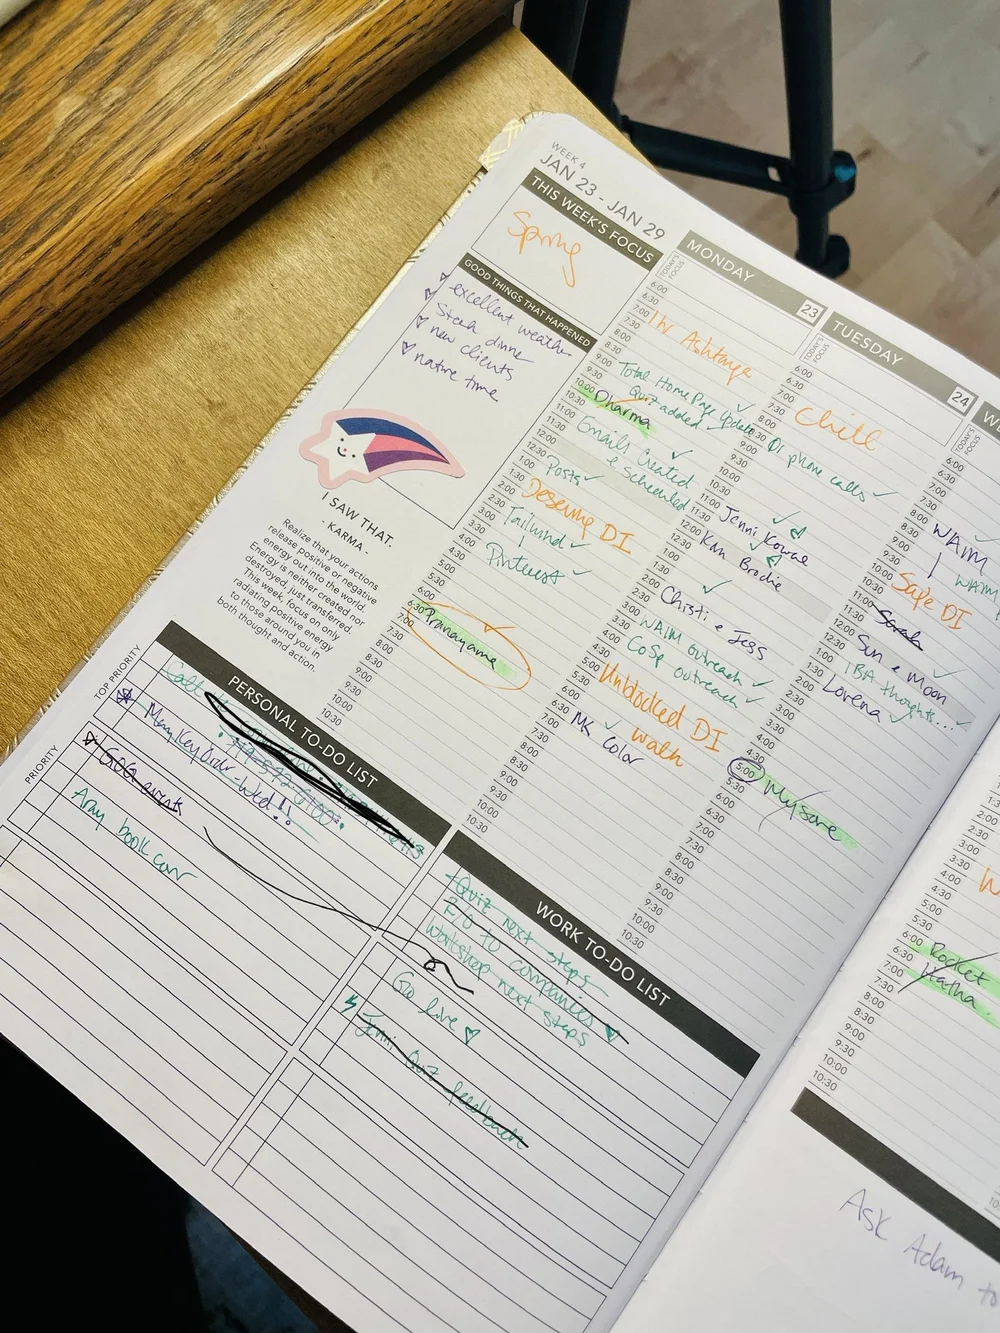 WEEK 4
JAN 23 - JAN 29
THIS WEEK'S FOCUS
Spring
GOOD THINGS THAT HAPPENED
excellent weather
Steak dinner
new clients
native time
I SAW THAT.
- KARMA -
Realize that your actions
release positive or negative
energy out into the world.
Energy is neither created nor
destroyed, just transferred.
This week, focus on only
radiating positive energy
to those around you in
both thought and action.
MONDAY
23
TODAY'S FOCUS
6:00
6:30
7:00
7:30
8:00
8:30
9:00
9:30
10:00
10:30
11:00
11:30
12:00
12:30
1:00
1:30
2:00
2:30
3:00
3:30
4:00
4:30
5:00
5:30
6:00
6:30
7:00
7:30
8:00
8:30
9:00
9:30
10:00
10:30
1 hr Ashtanga
Total Home Page Update
Quiz added
Dharma
Emails Created
& scheduled
Posts
Deserving DI
Tailwind
Pinterest
Pranayama
TUESDAY
24
TODAY'S FOCUS
6:00
6:30
7:00
7:30
8:00
8:30
9:00
9:30
10:00
10:30
11:00
11:30
12:00
12:30
1:00
1:30
2:00
2:30
3:00
3:30
4:00
4:30
5:00
5:30
6:00
6:30
7:00
7:30
8:00
8:30
9:00
9:30
10:00
10:30
Dr phone calls
Jenni Kowne
Kim
Brodie
Christi & Jess
WAIM outreach
CoSp outreach
Unblocked DI
walk
MK Color
WE
TODAY'S FOCUS
6:00
6:30
7:00
7:30
8:00
8:30
9:00
9:30
10:00
10:30
11:00
11:30
12:00
12:30
1:00
1:30
2:00
2:30
3:00
3:30
4:00
4:30
5:00
5:30
6:00
6:30
7:00
7:30
8:00
8:30
9:00
9:30
10:00
10:30
WAIM
WAIM
Safe DI
Sarah
Sun & Moon
IBA thoughts...
Lorena
Mysore
PERSONAL TO-DO LIST
TOP PRIORITY
Call
Mary Kay Order - Wed!!
PRIORITY
GOG events
Amy book cover
WORK TO-DO LIST
Quiz next steps
R/O to companies
Workshop next steps
Go live
Jenni Quiz feedback
1:30
2:00
2:30
3:00
3:30
4:00
4:30
5:00
5:30
6:00
6:30
7:00
7:30
8:00
8:30
9:00
9:30
10:00
10:30
Rocket
Hatha
Ask Adam to